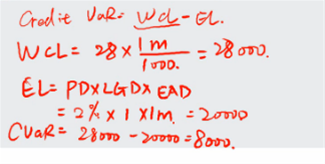 Credit VaR= WCL-EL.
WCL= 28 × 1m/1000. = 28000.
EL= PD×LGD× EAD
= 2% × 1 ×1m. = 20000
CVaR= 28000 - 20000 = 8000.